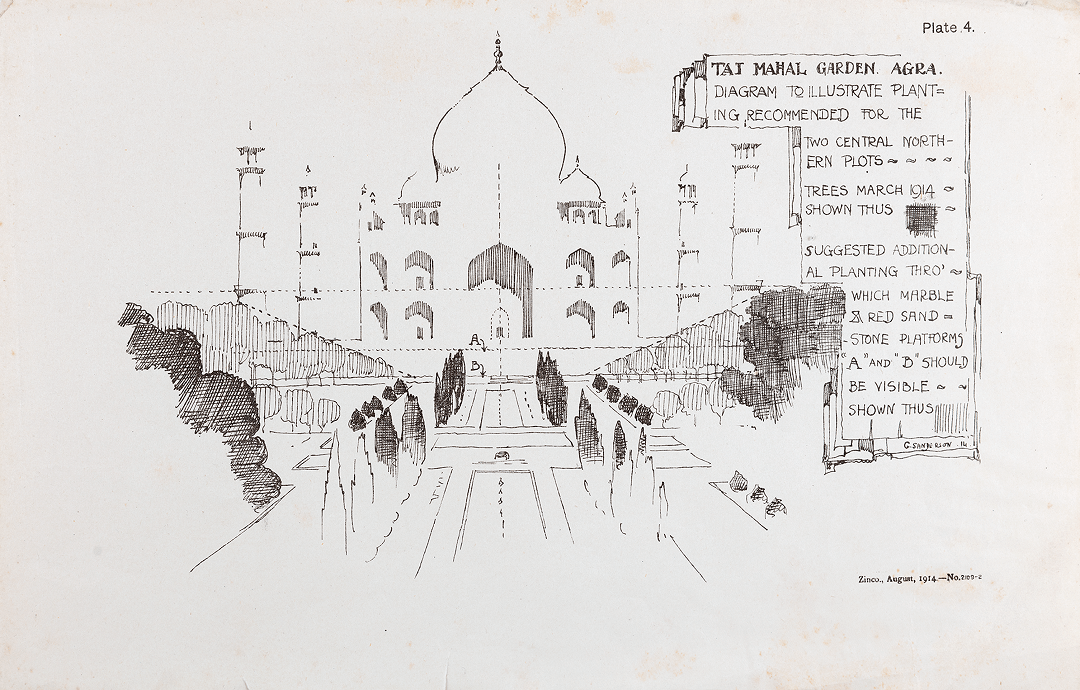 Plate 4.
TAJ MAHAL GARDEN. AGRA.
DIAGRAM TO ILLUSTRATE PLANT=
ING RECOMMENDED FOR THE
TWO CENTRAL NORTH-
ERN PLOTS ~ ~ ~ ~
TREES MARCH 1914 ~
SHOWN THUS ~
SUGGESTED ADDITION-
AL PLANTING THRO' ~
WHICH MARBLE
& RED SAND =
-STONE PLATFORMS
"A" AND "B" SHOULD
BE VISIBLE ~ ~
SHOWN THUS
G. SANDERSON. 14.
A
B
Zinco., August, 1914.—No. 2109-2